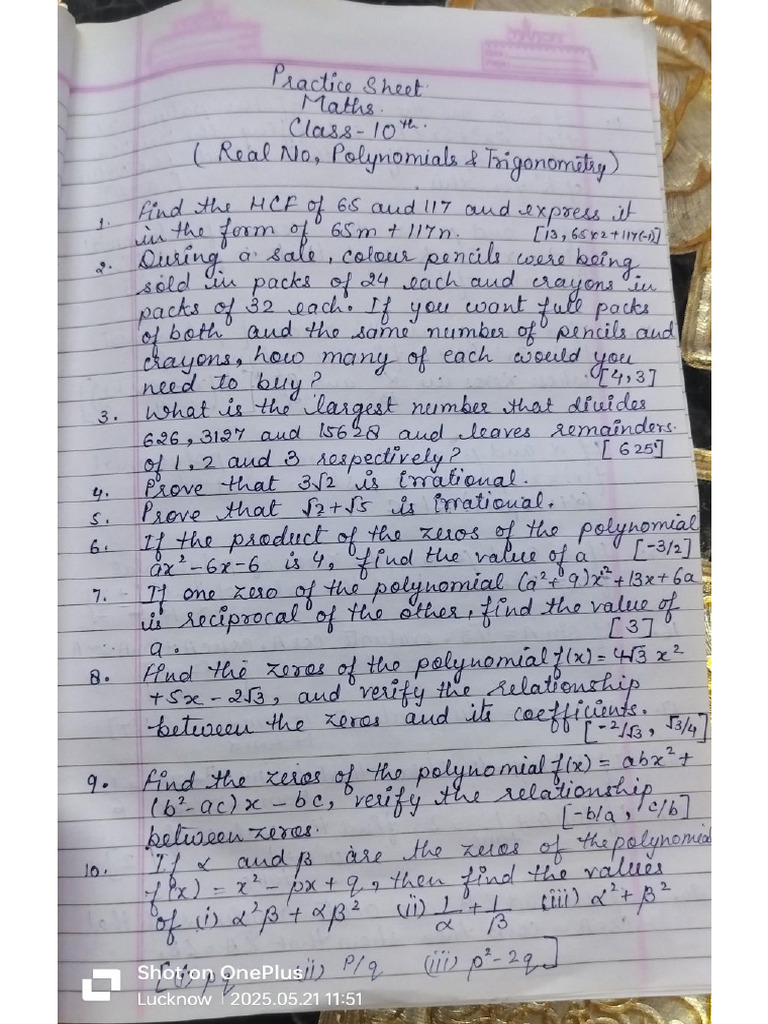 Practice Sheet.
Maths.
Class-10th.
( Real No, Polynomials & Trigonometry)
1. Find the HCF of 65 and 117 and express it
in the form of 65m + 117n. [13, 65x2+117(-1)]
2. During a sale, colour pencils were being
sold in packs of 24 each and crayons in
packs of 32 each. If you want full packs
of both and the same number of pencils and
crayons, how many of each would you
need to buy? [4,3]
3. What is the largest number that divides
626, 3127 and 15628 and leaves remainders
of 1, 2 and 3 respectively? [625]
4. Prove that 3√2 is irrational.
5. Prove that √2+√5 is irrational.
6. If the product of the zeros of the polynomial
ax²-6x-6 is 4, find the value of a [-3/2]
7. If one zero of the polynomial (a²+9)x²+13x+6a
is reciprocal of the other, find the value of
a. [3]
8. Find the zeros of the polynomial f(x) = 4√3 x²
+5x-2√3, and verify the relationship
between the zeros and its coefficients.
[-2/√3, √3/4]
9. Find the zeros of the polynomial f(x) = abx²+
(b²-ac)x-bc, verify the relationship
between zeros. [-b/a, c/b]
10. If α and β are the zeros of the polynomial
f(x) = x²-px+q, then find the values
of (i) α²β+αβ² (ii) 1/α + 1/β (iii) α²+β²
[(i) pq (ii) P/q (iii) p²-2q]
Shot on OnePlus
Lucknow | 2025.05.21 11:51